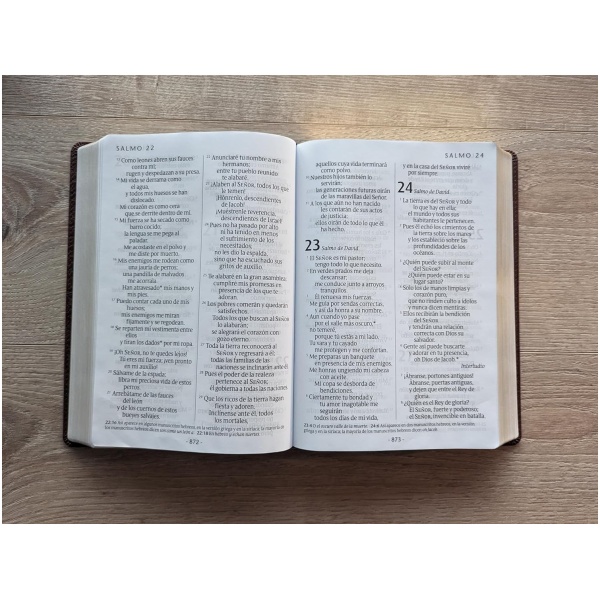 SALMO 22
Como leones abren sus fauces
contra mí;
rugen y despedazan a su presa.
Mi vida se derrama como
el agua,
y todos mis huesos se han
dislocado.
Mi corazón es como cera
que se derrite dentro de mí.
Mi fuerza se ha secado como
barro cocido;
la lengua se me pega al
paladar.
Me acostaste en el polvo y
me diste por muerto.
Mis enemigos me rodean como
una jauría de perros;
una pandilla de malvados
me acorrala.
Han atravesado* mis manos y
mis pies.
Puedo contar cada uno de mis
huesos;
mis enemigos me miran
fijamente y se regodean.
Se reparten mi vestimenta entre
ellos
y tiran los dados* por mi ropa.
¡Oh SEÑOR, no te quedes lejos!
Tú eres mi fuerza, ¡ven pronto
en mi auxilio!
Sálvame de la espada;
libra mi preciosa vida de estos
perros.
Arrebátame de las fauces
del león
y de los cuernos de estos
bueyes salvajes.
Anunciaré tu nombre a mis
hermanos;
entre tu pueblo reunido
te alabaré.
¡Alaben al SEÑOR, todos los que
le temen!
¡Hónrenlo, descendientes
de Jacob!
¡Muéstrenle reverencia,
descendientes de Israel!
Pues no ha pasado por alto
ni ha tenido en menos
el sufrimiento de los
necesitados;
no les dio la espalda,
sino que ha escuchado sus
gritos de auxilio.
Te alabaré en la gran asamblea;
cumpliré mis promesas en
presencia de los que te
adoran.
Los pobres comerán y quedarán
satisfechos.
Todos los que buscan al SEÑOR
lo alabarán;
se alegrará el corazón con
gozo eterno.
Toda la tierra reconocerá al
SEÑOR y regresará a él;
todas las familias de las
naciones se inclinarán ante él.
Pues el poder de la realeza
pertenece al SEÑOR;
él gobierna a todas las naciones.
Que los ricos de la tierra hagan
fiesta y adoren;
Inclínense ante él, todos
los mortales,
- 872 -
SALMO 24
aquellos cuya vida terminará
como polvo.
Nuestros hijos también lo
servirán;
las generaciones futuras oirán
de las maravillas del Señor.
A los que aún no han nacido
les contarán de sus actos
de justicia;
ellos oirán de todo lo que él
ha hecho.
23 Salmo de David.
El SEÑOR es mi pastor;
tengo todo lo que necesito.
En verdes prados me deja
descansar;
me conduce junto a arroyos
tranquilos.
Él renueva mis fuerzas.
Me guía por sendas correctas,
y así da honra a su nombre.
Aun cuando yo pase
por el valle más oscuro,*
no temeré,
porque tú estás a mi lado.
Tu vara y tu cayado
me protegen y me confortan.
Me preparas un banquete
en presencia de mis enemigos.
Me honras ungiendo mi cabeza
con aceite.
Mi copa se desborda de
bendiciones.
Ciertamente tu bondad y
tu amor inagotable me
seguirán
todos los días de mi vida,
y en la casa del SEÑOR viviré
por siempre.
24 Salmo de David.
La tierra es del SEÑOR y todo
lo que hay en ella;
el mundo y todos sus
habitantes le pertenecen.
Pues él echó los cimientos de
la tierra sobre los mares
y los estableció sobre las
profundidades de los
océanos.
¿Quién puede subir al monte
del SEÑOR?
¿Quién puede estar en su
lugar santo?
Solo los de manos limpias y
corazón puro,
que no rinden culto a ídolos
y nunca dicen mentiras.
Ellos recibirán la bendición
del SEÑOR
y tendrán una relación
correcta con Dios su
salvador.
Gente así puede buscarte
y adorar en tu presencia,
oh Dios de Jacob.*
Interludio
¡Ábranse, portones antiguos!
Ábranse, puertas antiguas,
y dejen que entre el Rey de
gloria.
¿Quién es el Rey de gloria?
El SEÑOR, fuerte y poderoso;
el SEÑOR, invencible en batalla.
- 873 -